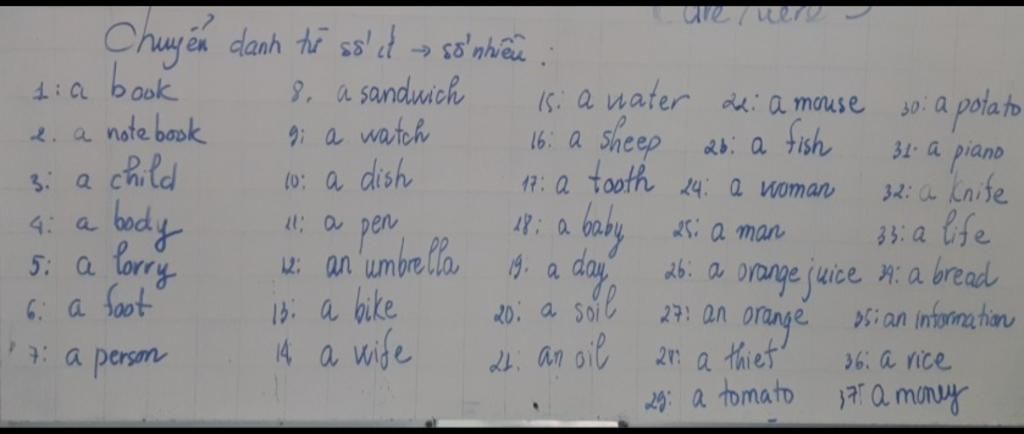 are/were
Chuyển danh từ số ít → số nhiều :
1: a book
2. a notebook
3: a child
4: a body
5: a lorry
6: a foot
7: a person
8. a sandwich
9: a watch
10: a dish
11: a pen
12: an umbrella
13: a bike
14 a wife
15: a water
16: a sheep
17: a tooth
18: a baby
19. a day
20: a soil
21: an oil
22: a mouse
23: a fish
24: a woman
25: a man
26: a orange juice
27: an orange
28: a thief
29: a tomato
30: a potato
31. a piano
32: a knife
33: a life
34: a bread
35: an information
36: a rice
37: a money